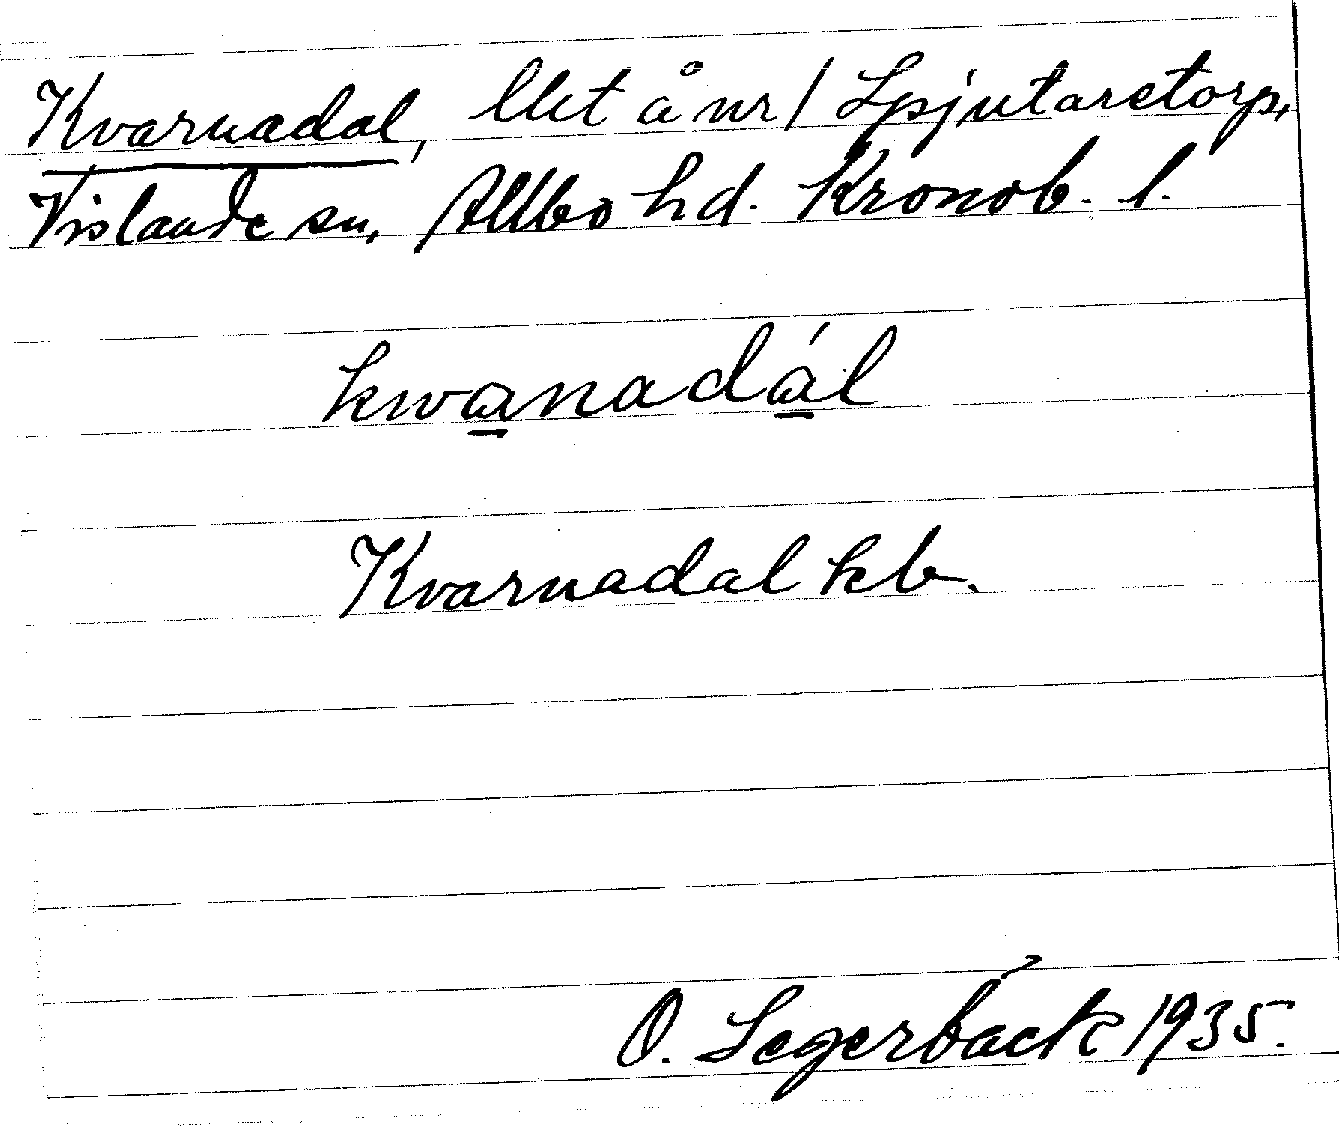 Kvarnadal, lht å nr 1 Spjutaretorp,
Vislanda sn, Allbo hd. Kronob. l.
kwanadál
Kvarnadal kb.
O. Segerbäck 1935.